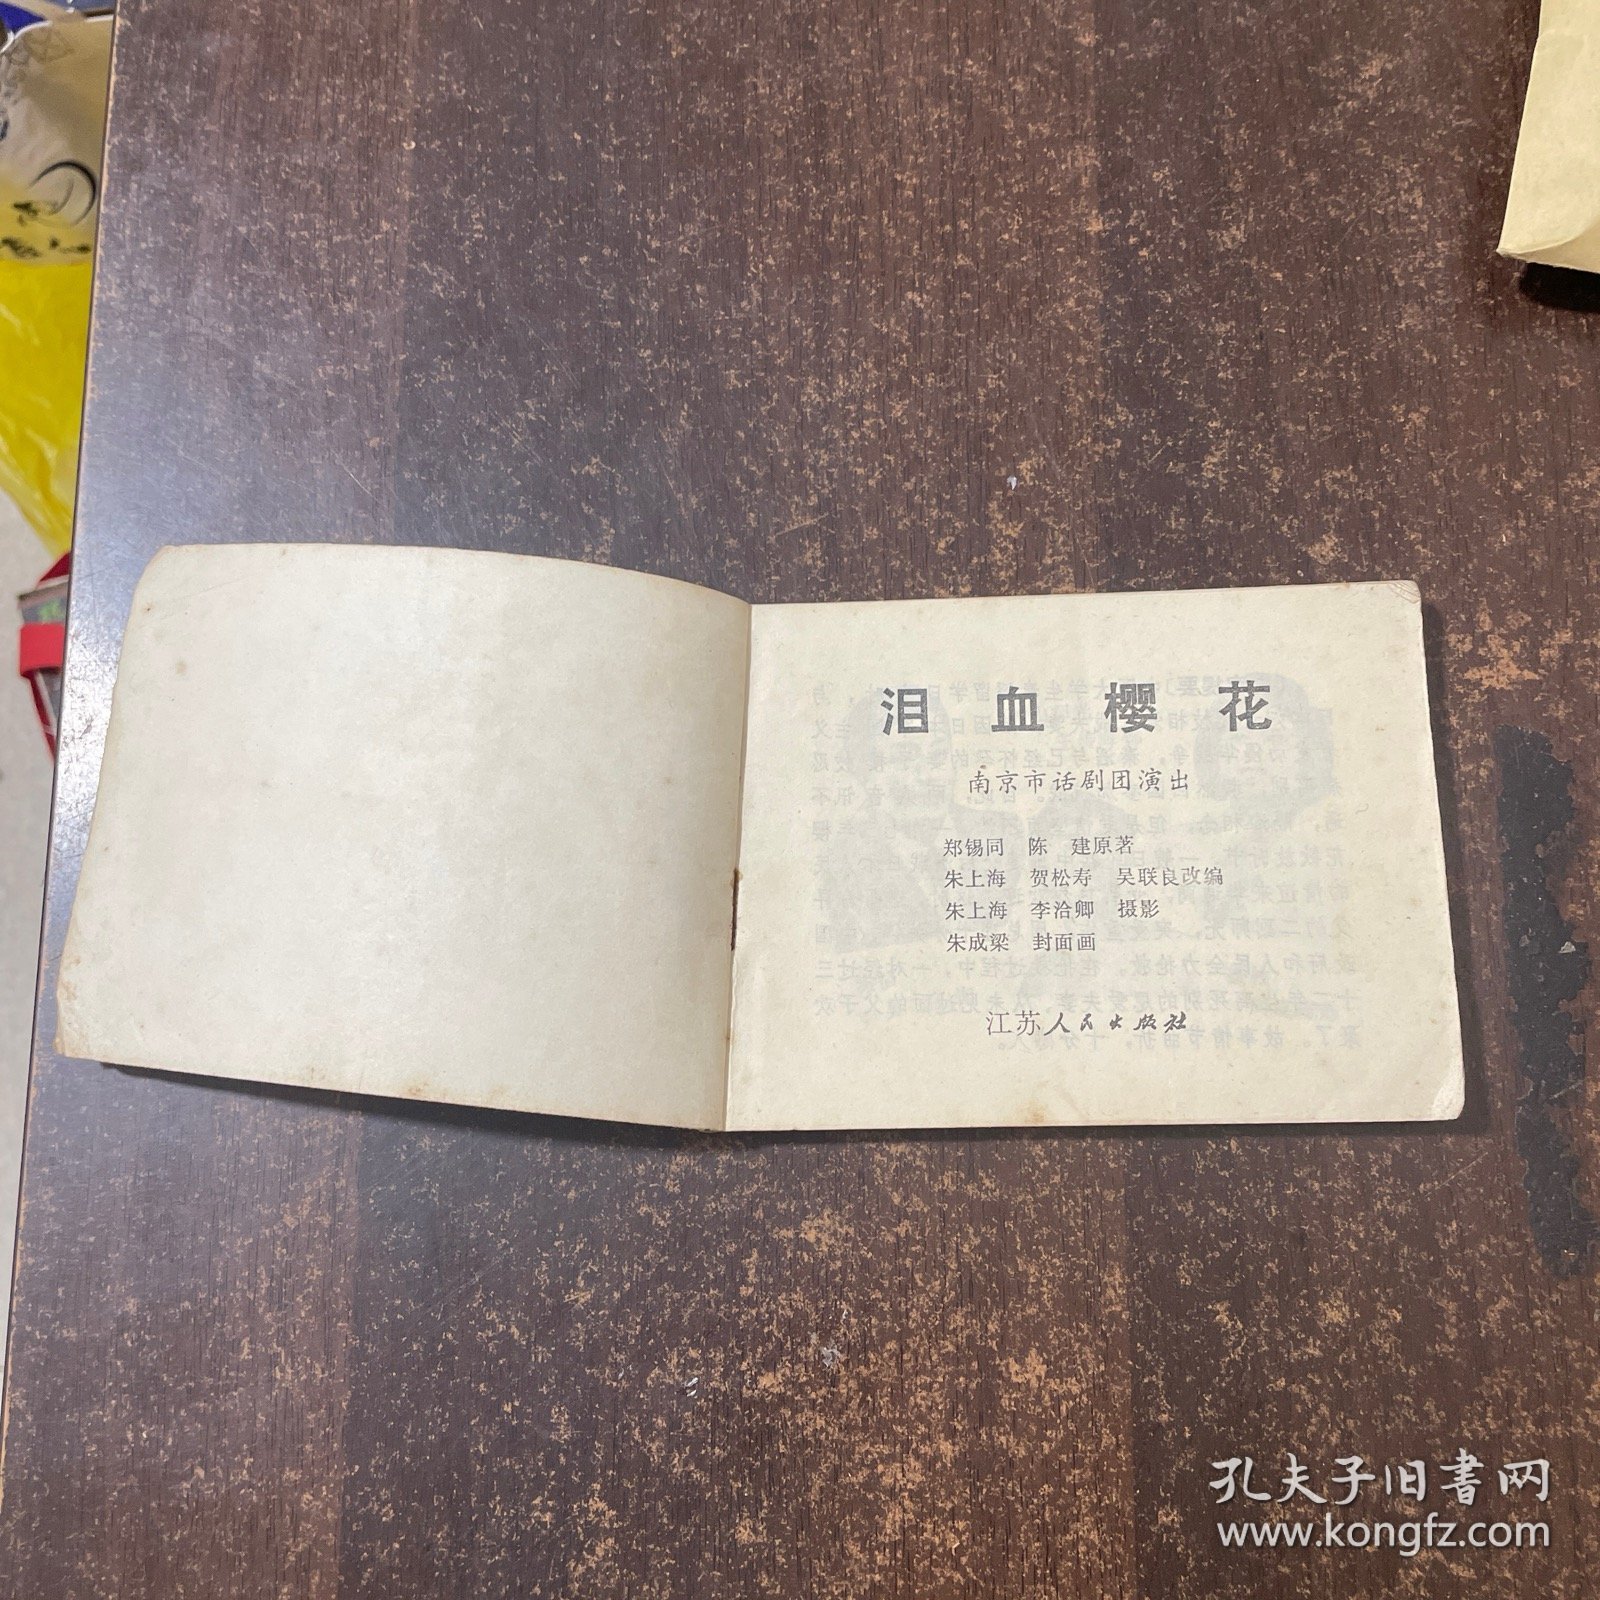 泪血樱花
南京市话剧团演出
郑锡同 陈 建原著
朱上海 贺松寿 吴联良改编
朱上海 李洽卿 摄影
朱成梁 封面画
江苏人民出版社
孔夫子旧書网
www.kongfz.com